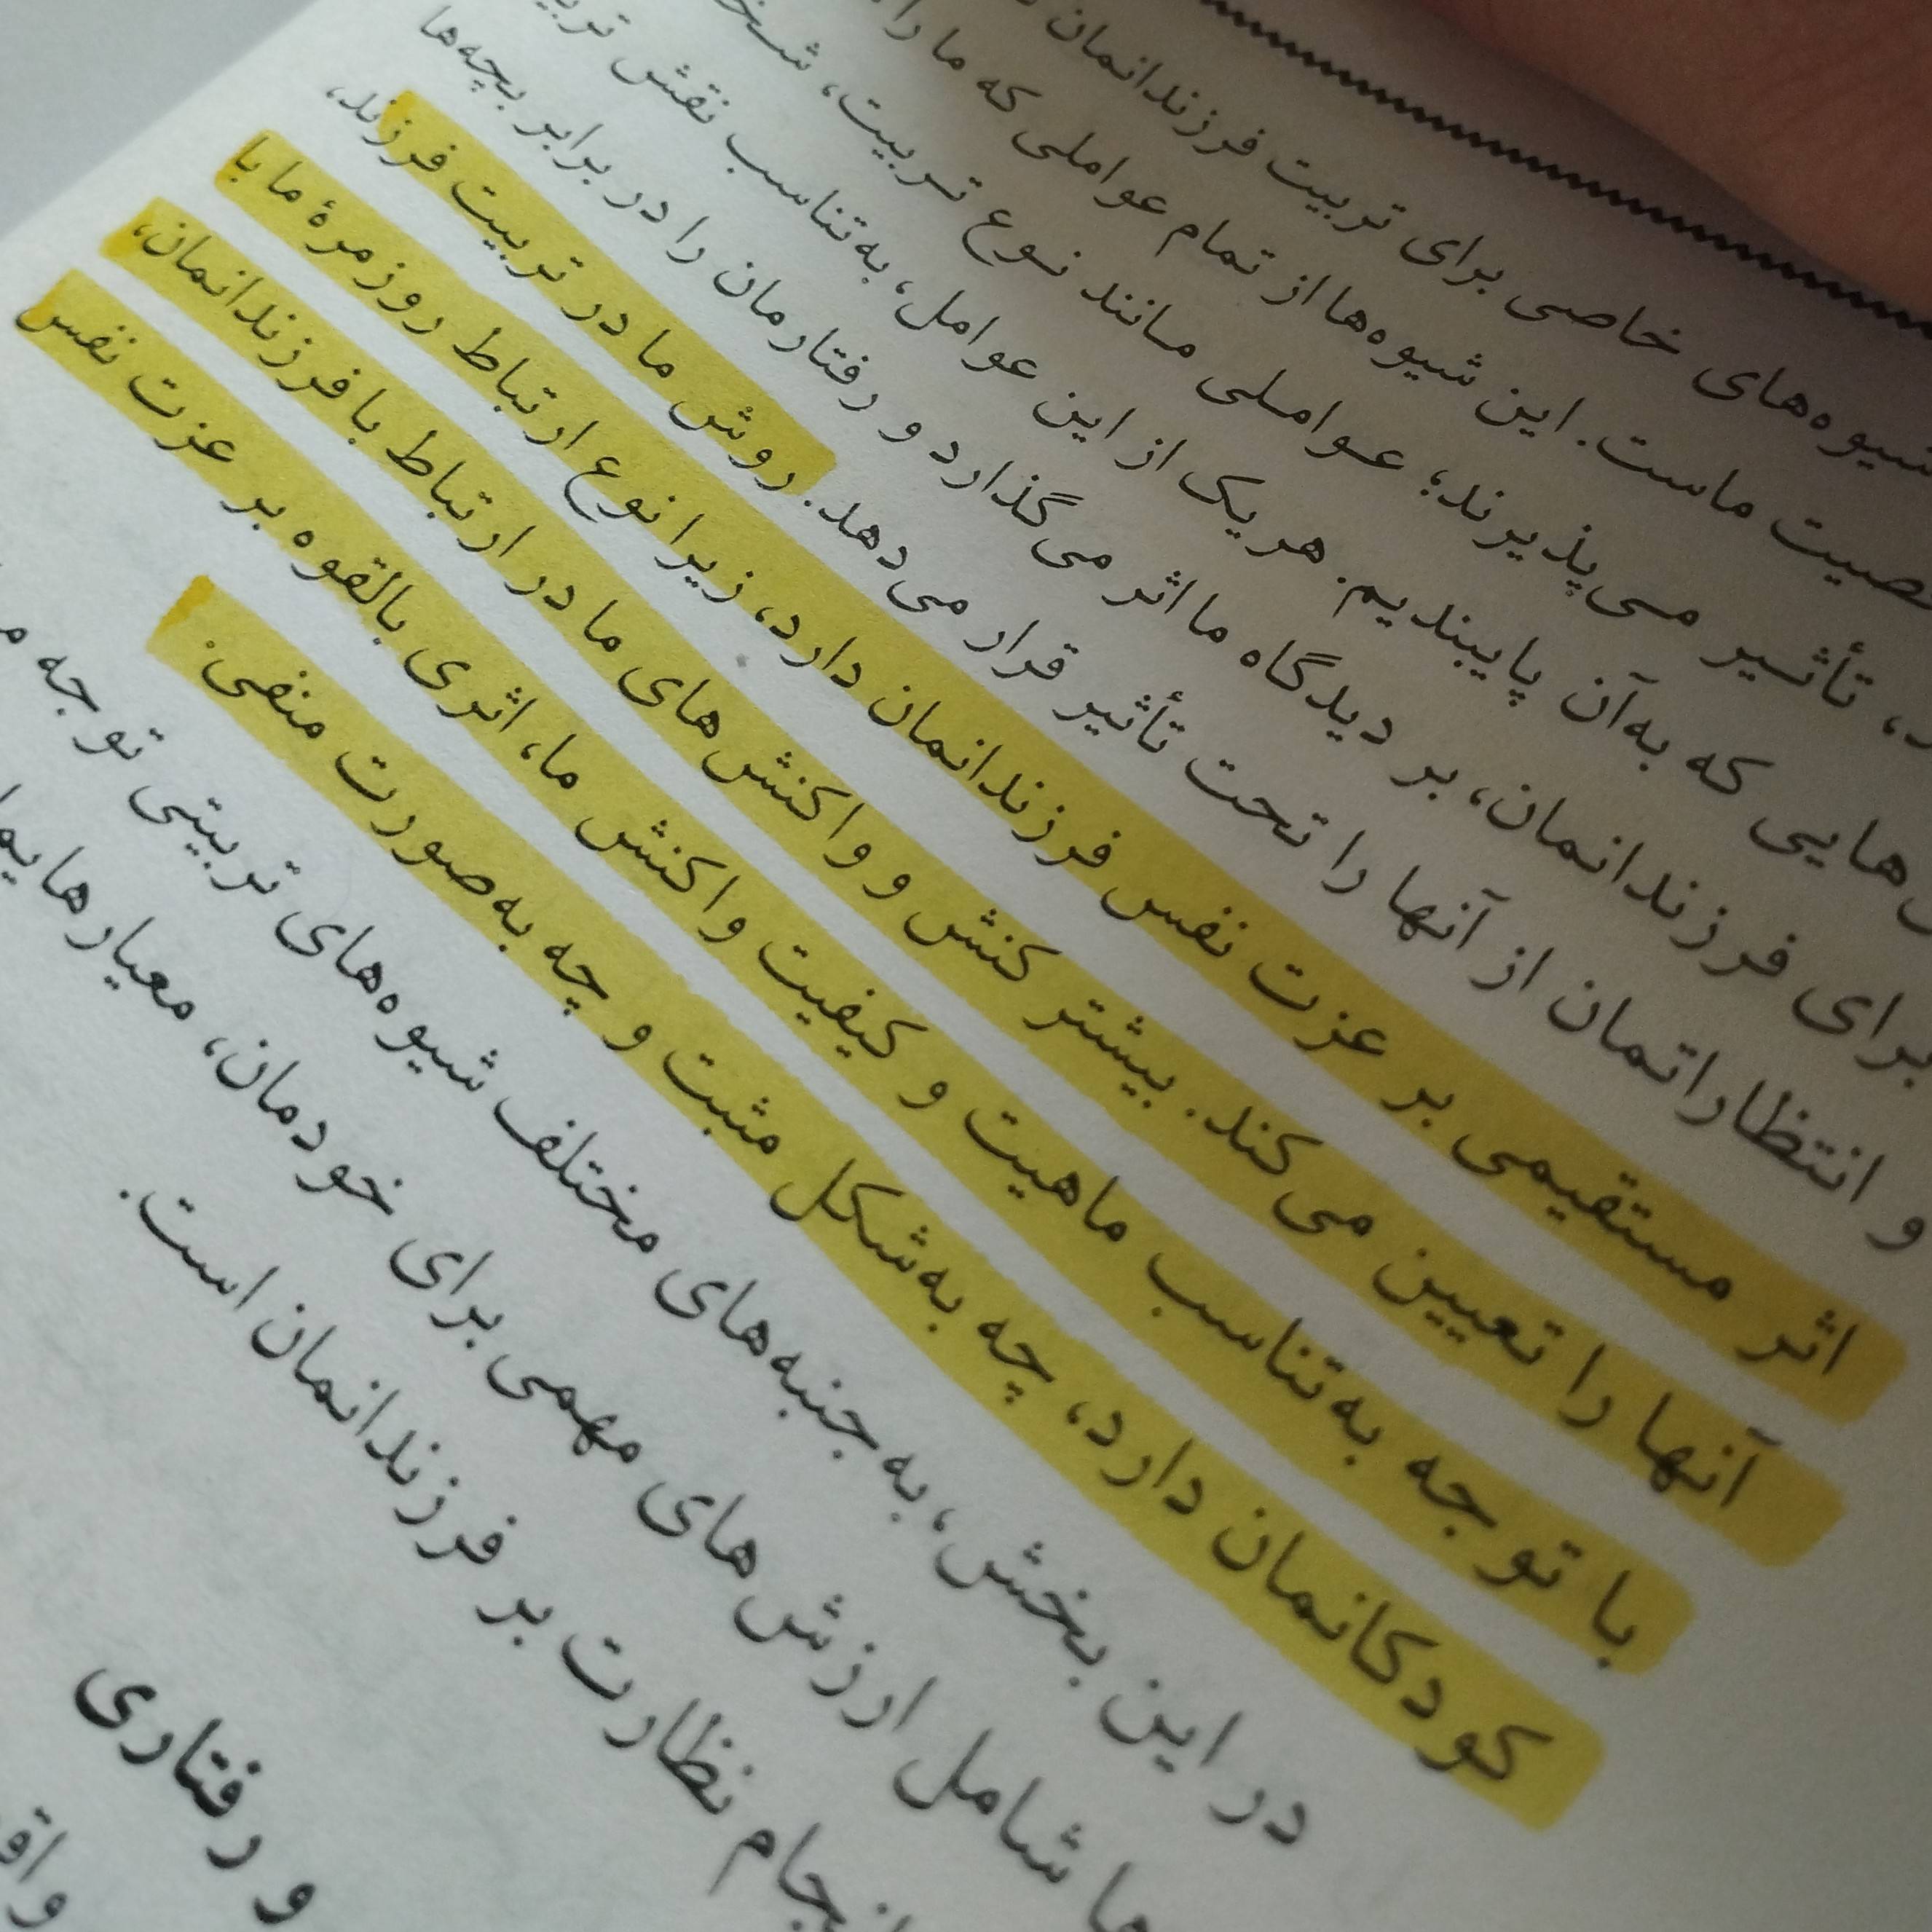 شیوه‌های خاصی برای تربیت فرزندانمان
ماست. این شیوه‌ها از تمام عواملی که ما را
تأثیر می‌پذیرند؛ عواملی مانند نوع تربیت،
که به‌آن پایبندیم. هر یک از این عوامل، به‌تناسب نقش
برای فرزندانمان، بر دیدگاه ما اثر می‌گذارد و رفتارمان را در برابر بچه‌ها
و انتظاراتمان از آنها را تحت تأثیر قرار می‌دهد. روش ما در تربیت فرزند،
اثر مستقیمی بر عزت نفس فرزندانمان دارد، زیرا نوع ارتباط روزمرهٔ ما با
آنها را تعیین می‌کند. بیشتر کنش و واکنش‌های ما در ارتباط با فرزندانمان،
با توجه به‌تناسب ماهیت و کیفیت واکنش ما، اثری بالقوه بر عزت نفس
کودکانمان دارد، چه به‌شکل مثبت و چه به‌صورت منفی.
در این بخش، به جنبه‌های مختلف شیوه‌های تربیتی توجه
شامل ارزش‌های مهمی برای خودمان، معیارهایمان
انجام نظارت بر فرزندانمان است.
و رفتاری